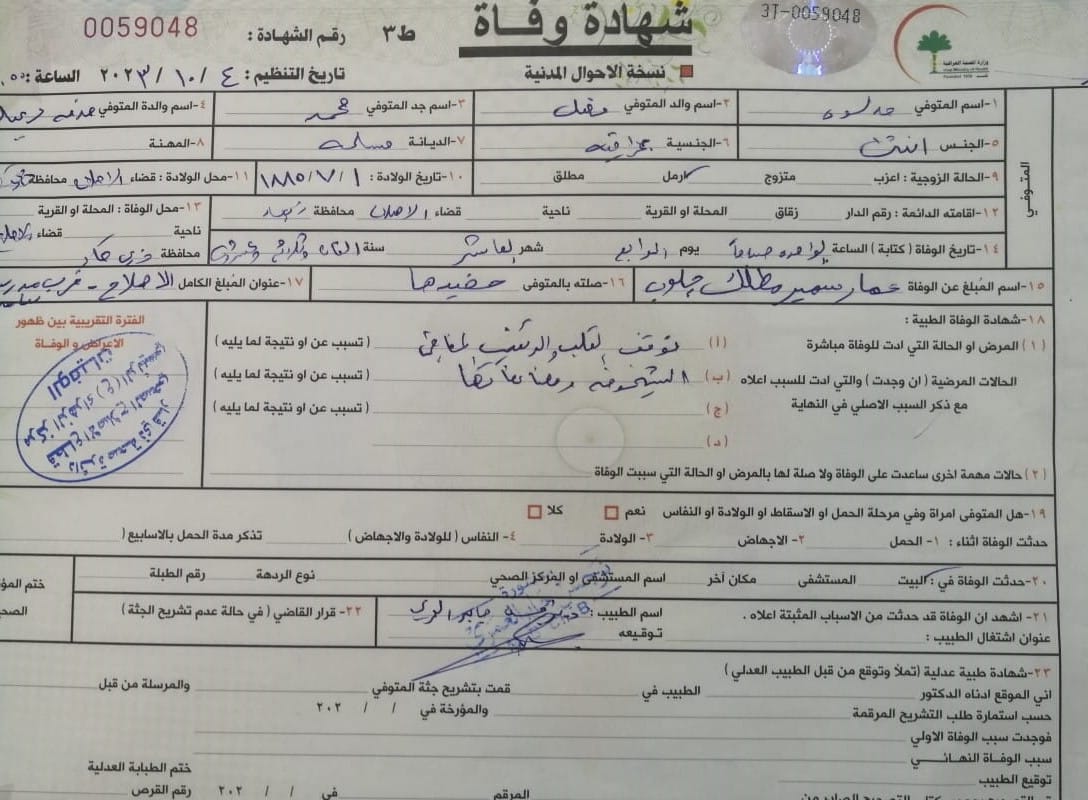 شهادة وفاة
3T-0059048
وزارة الصحة العراقية
رقم الشهادة : ط٣ 0059048
نسخة الاحوال المدنية
تاريخ التنظيم : ٤ / ١٠ / ٢٠٢٣ الساعة :
المتوفي
١-اسم المتوفي ٢-اسم والد المتوفي ٣-اسم جد المتوفي محمد ٤-اسم والدة المتوفي
٥-الجنس انثى ٦-الجنسية عراقية ٧-الديانة مسلمة ٨-المهنة
٩-الحالة الزوجية : اعزب متزوج ارمل مطلق ١٠-تاريخ الولادة : ١ / ٧ / ١٨٨٥ ١١-محل الولادة : قضاء الاصلاح محافظة
١٢-اقامته الدائمة : رقم الدار زقاق المحلة او القرية ناحية قضاء الاصلاح محافظة ذي قار
١٣-محل الوفاة : المحلة او القرية
ناحية قضاء الاصلاح
محافظة ذي قار
١٤-تاريخ الوفاة ( كتابة ) الساعة الواحدة صباحاً يوم الرابع شهر العاشر سنة الفان وثلاثة وعشرون
١٥-اسم المُبلغ عن الوفاة عمار سمير مطلك چلوب ١٦-صلته بالمتوفي حفيدها ١٧-عنوان المُبلغ الكامل الاصلاح - قرب مدرسة
١٨-شهادة الوفاة الطبية :
الفترة التقريبية بين ظهور
الاعراض و الوفاة
( ١ ) المرض او الحالة التي ادت للوفاة مباشرة ( أ ) توقف القلب والرئتين المفاجئ ( تسبب عن او نتيجة لما يليه )
الحالات المرضية ( ان وجدت ) والتي ادت للسبب اعلاه ( ب ) الشيخوخة ومضاعفاتها ( تسبب عن او نتيجة لما يليه )
مع ذكر السبب الاصلي في النهاية ( ج ) ( تسبب عن او نتيجة لما يليه )
( د )
( ٢ ) حالات مهمة اخرى ساعدت على الوفاة ولا صلة لها بالمرض او الحالة التي سببت الوفاة
دائرة صحة ذي قار
قطاع الاصلاح
الوفيات
١٩-هل المتوفى امراة وفي مرحلة الحمل او الاسقاط او الولادة او النفاس نعم كلا
حدثت الوفاة اثناء : ١- الحمل ٢- الاجهاض ٣- الولادة ٤- النفاس ( للولادة والاجهاض ) تذكر مدة الحمل بالاسابيع (
٢٠-حدثت الوفاة في : البيت المستشفى مكان آخر اسم المستشفى او المركز الصحي نوع الردهة رقم الطبلة
٢١- اشهد ان الوفاة قد حدثت من الاسباب المثبتة اعلاه . اسم الطبيب :
عنوان اشتغال الطبيب : توقيعه
٢٢- قرار القاضي ( في حالة عدم تشريح الجثة )
٢٣-شهادة طبية عدلية (تملأ وتوقع من قبل الطبيب العدلي )
اني الموقع ادناه الدكتور الطبيب في قمت بتشريح جثة المتوفي والمرسلة من قبل
حسب استمارة طلب التشريح المرقمة والمؤرخة في / / ٢٠٢
فوجدت سبب الوفاة الاولي
سبب الوفاة النهائي
توقيع الطبيب ختم الطبابة العدلية
المرقم في / / ٢٠٢ رقم القرص